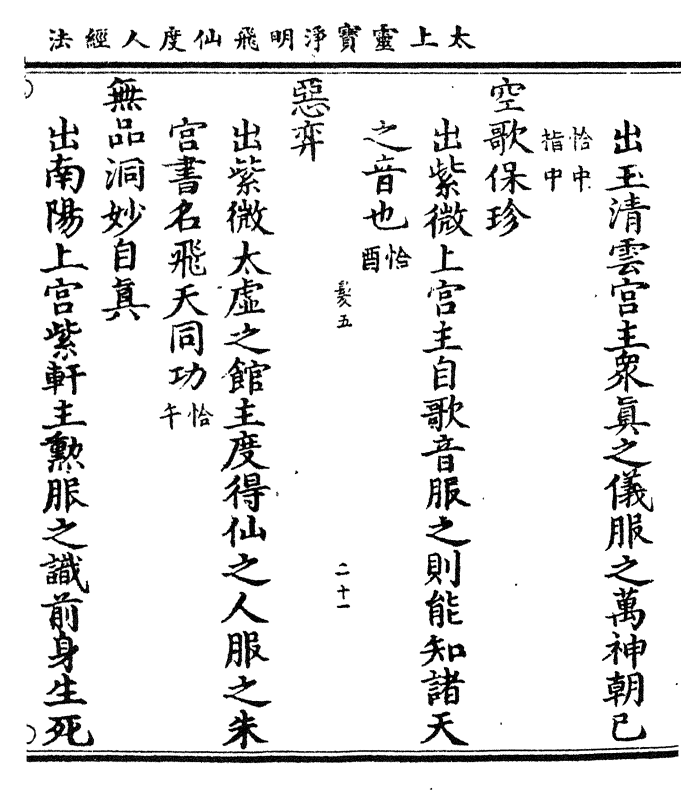 太上靈寶淨明飛仙度人經法
出玉清雲宮主衆眞之儀服之萬神朝己
恰中
指中
空歌保珍
出紫微上宮主自歌音服之則能知諸天
之音也恰
酉
髮五
二十一
惡弈
出紫微太虛之館主度得仙之人服之朱
宮書名飛天同功恰
午
無品洞妙自眞
出南陽上宮紫軒主勲服之識前身生死